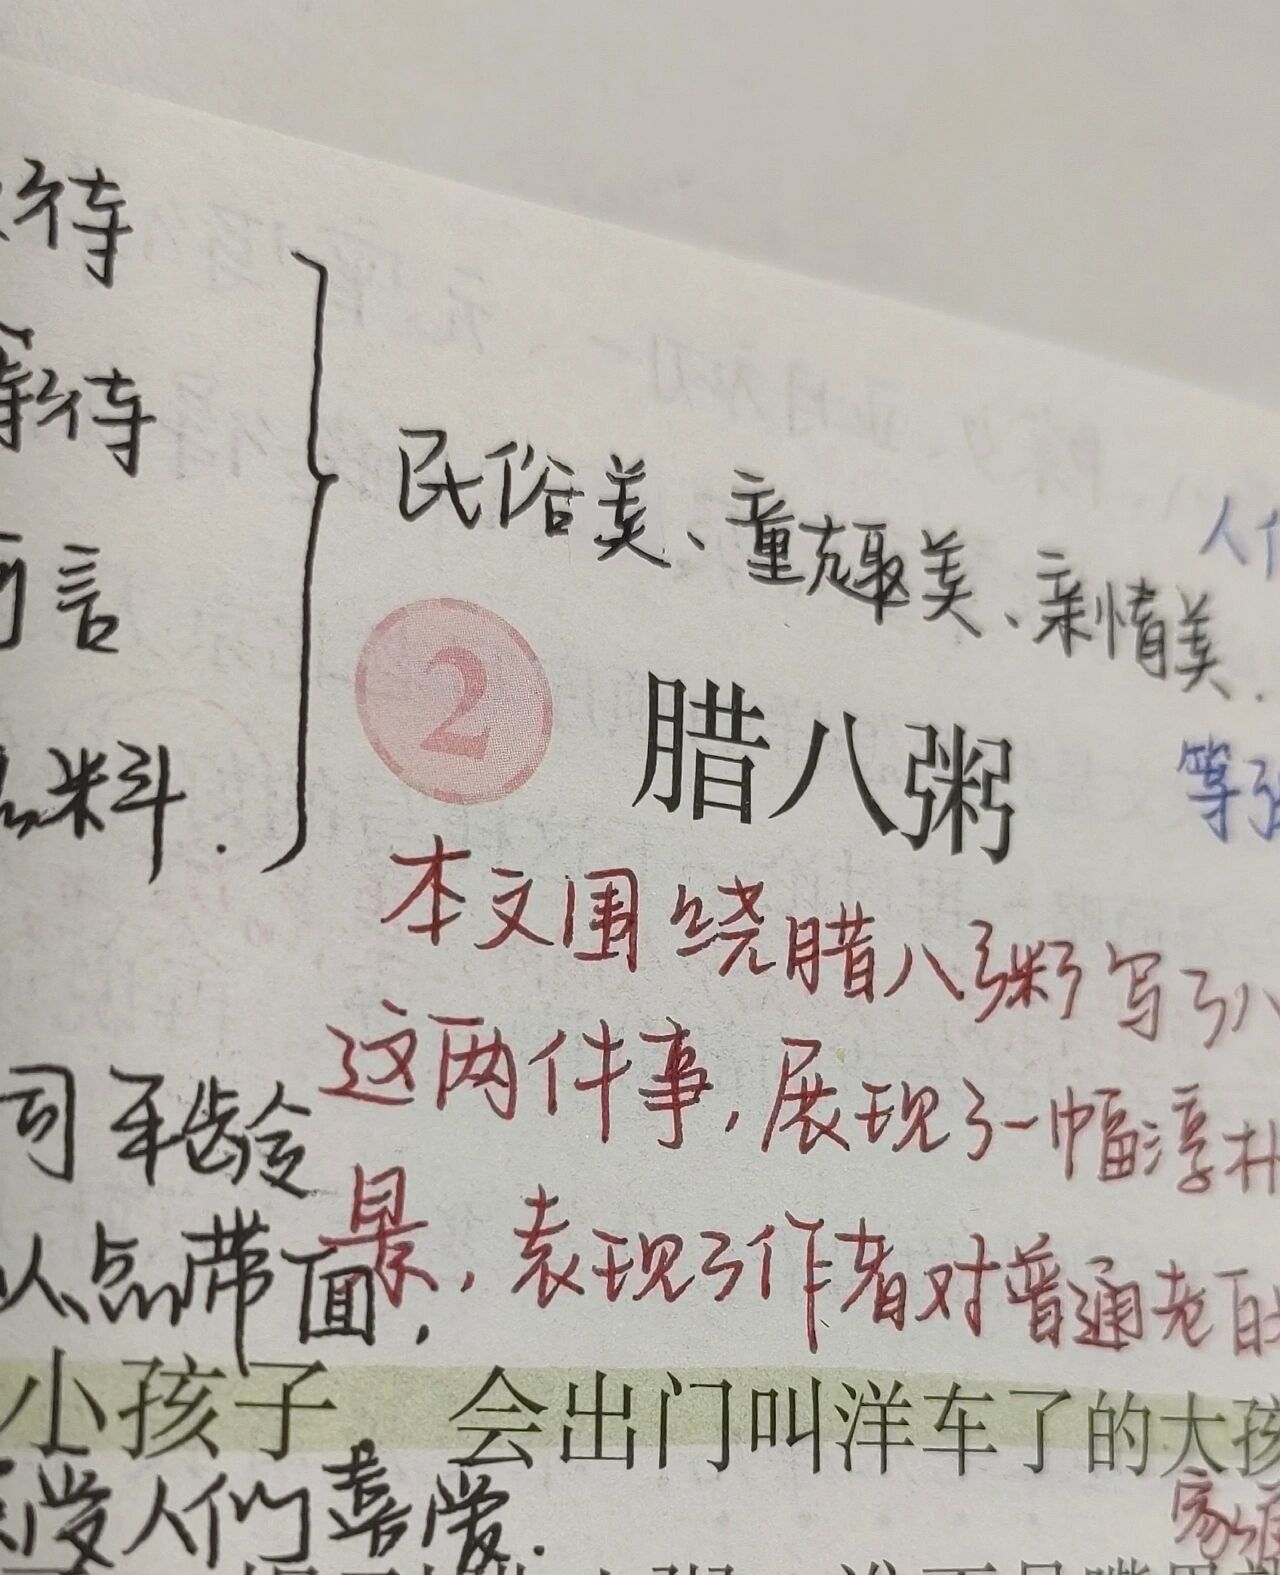 待
等待
言
料.
民俗美、童趣美、亲情美.
人们
等
2
腊八粥
本文围绕腊八粥写了八
这两件事,展现了一幅淳朴
景,表现了作者对普通老百
司年龄
以点带面,
小孩子,会出门叫洋车了的大孩
受人们喜爱.
家庭